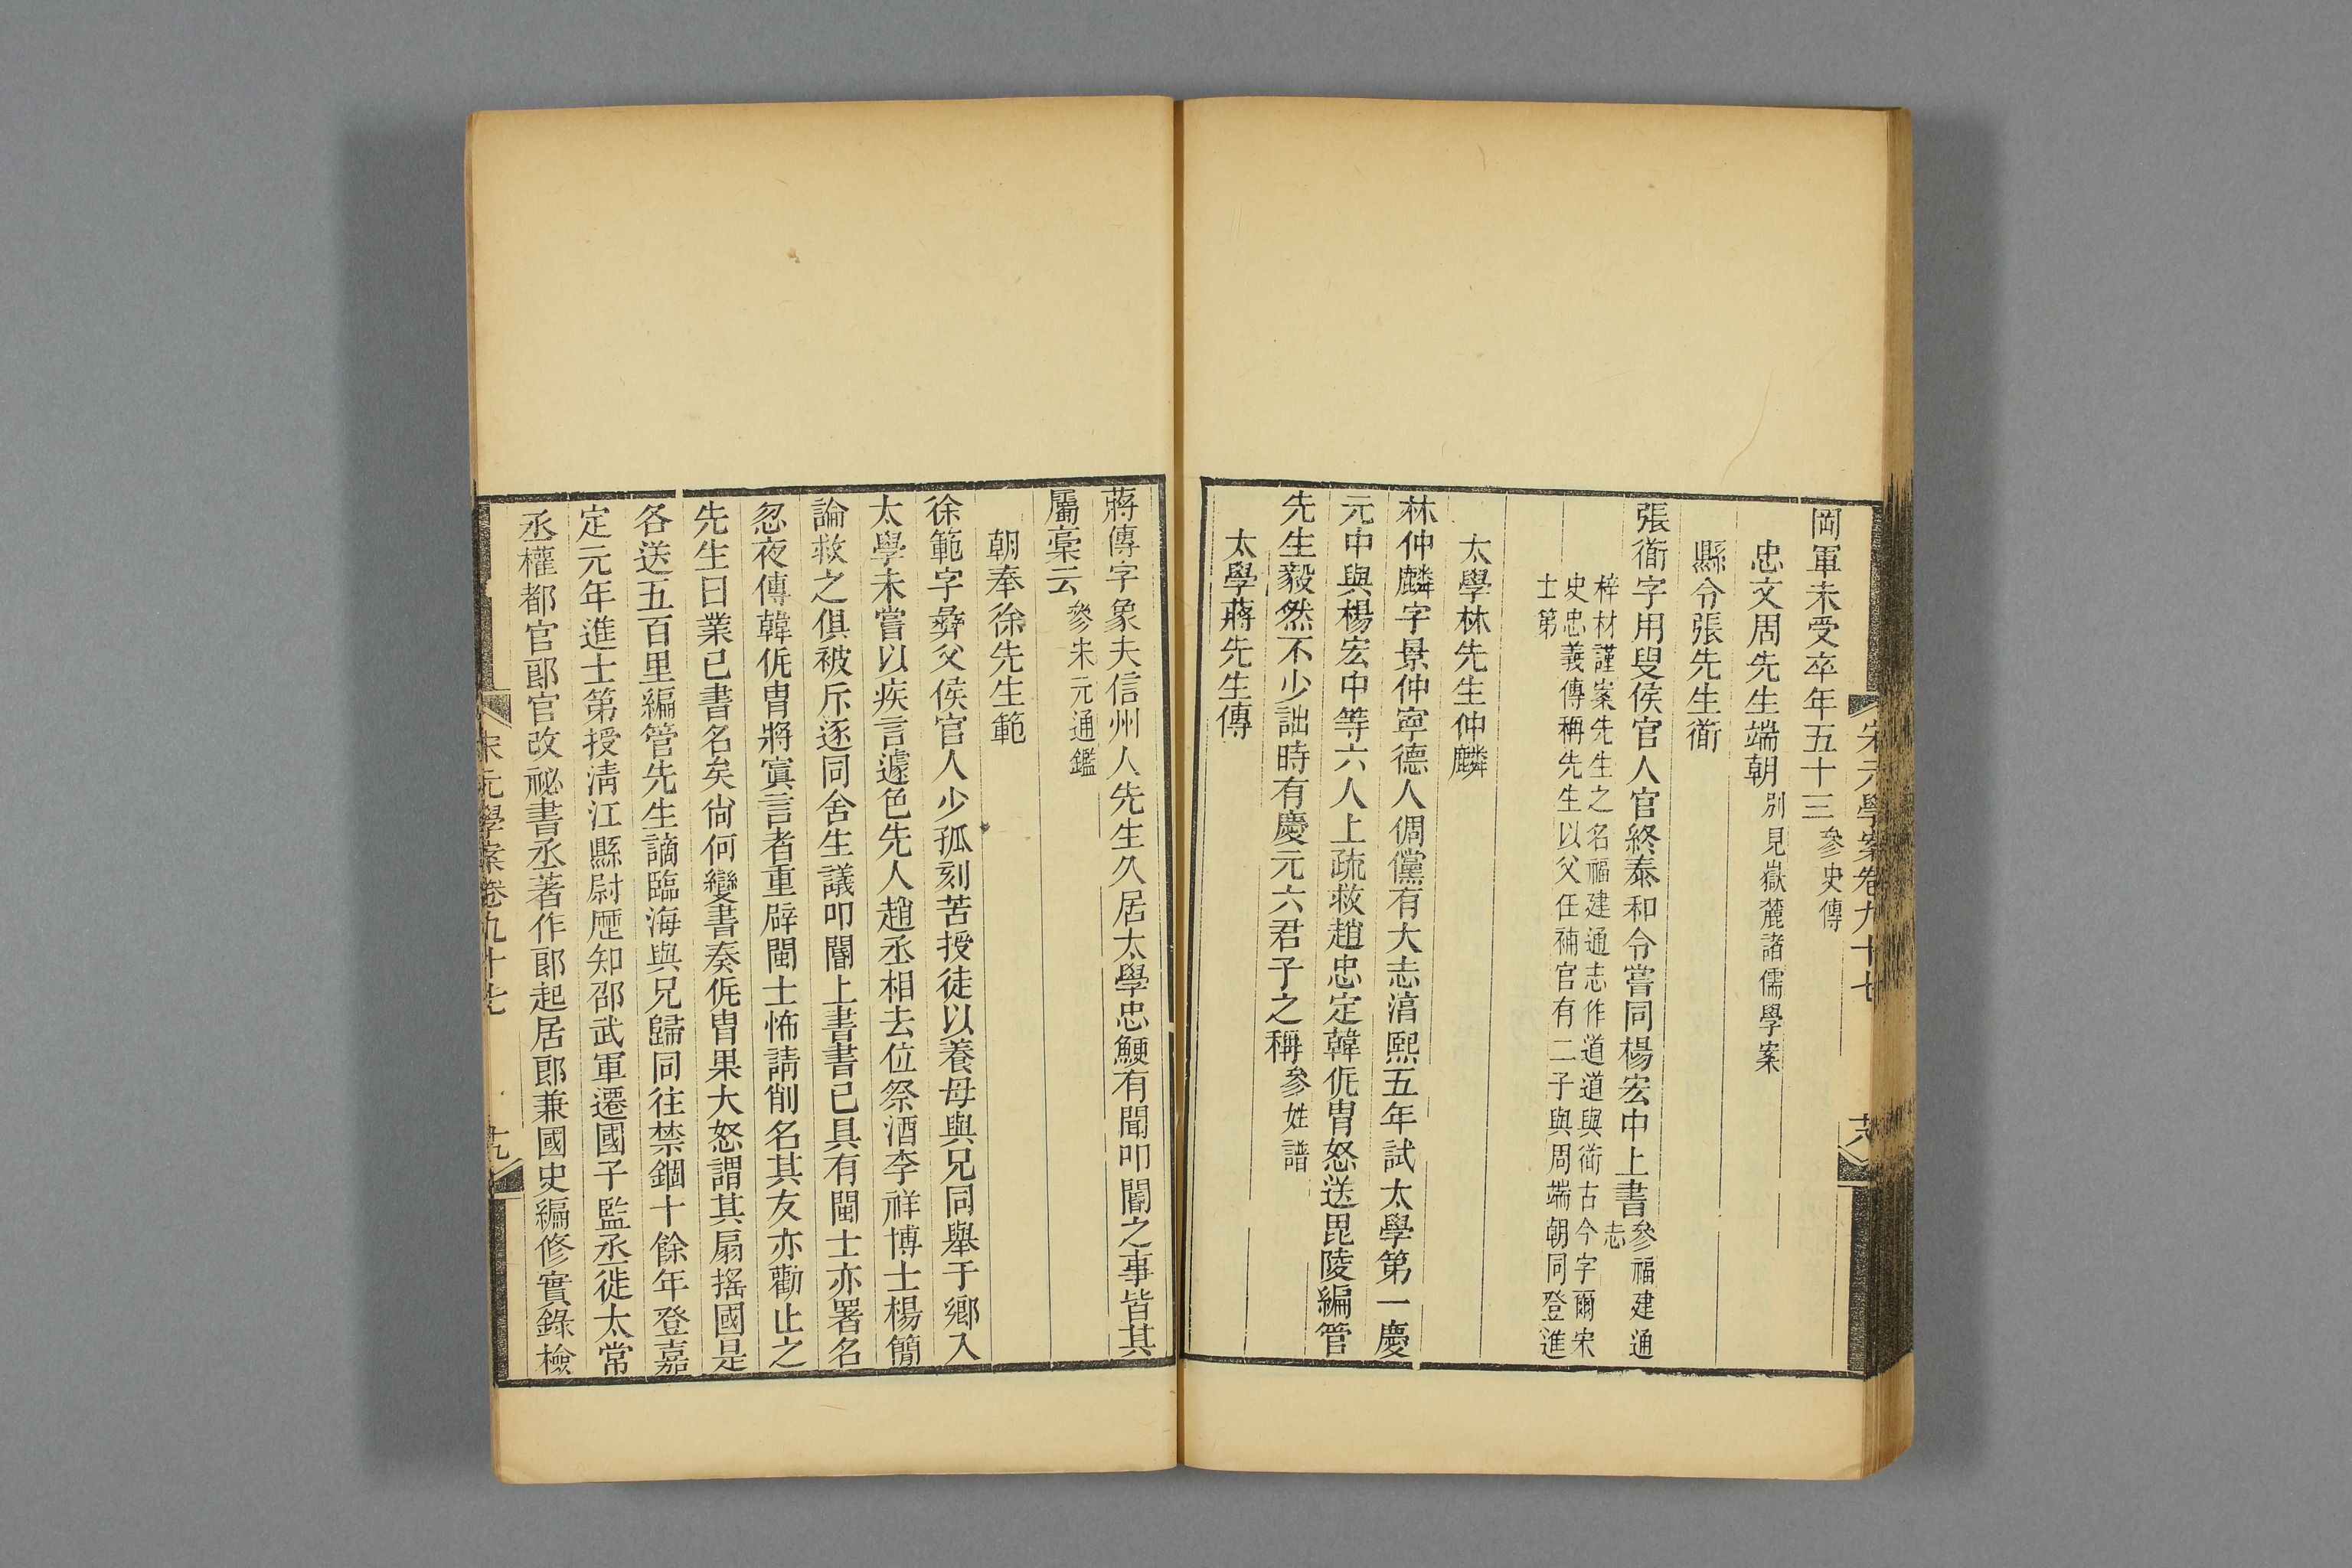 宋元學案卷九十七
岡軍未受卒年五十三參史傳
忠文周先生端朝別見嶽麓諸儒學案
縣令張先生衜
張衜字用叟侯官人官終泰和令嘗同楊宏中上書參福建通志
梓材謹案先生之名福建通志作道道與衜古今字爾宋
史忠義傳稱先生以父任補官有二子與周端朝同登進
士第
太學林先生仲麟
林仲麟字景仲寧德人倜儻有大志淳熙五年試太學第一慶
元中與楊宏中等六人上疏救趙忠定韓侂胄怒送毘陵編管
先生毅然不少詘時有慶元六君子之稱參姓譜
太學蔣先生傳
蔣傳字象夫信州人先生久居太學忠鯁有聞叩閽之事皆其
屬稾云參宋元通鑑
朝奉徐先生範
徐範字彝父侯官人少孤刻苦授徒以養母與兄同舉于鄉入
太學未嘗以疾言遽色先人趙丞相去位祭酒李祥博士楊簡
論救之俱被斥逐同舍生議叩閽上書書已具有閩士亦署名
忽夜傳韓侂胄將寘言者重辟閩士怖請削名其友亦勸止之
先生曰業已書名矣尙何變書奏侂胄果大怒謂其扇搖國是
各送五百里編管先生謫臨海與兄歸同往禁錮十餘年登嘉
定元年進士第授清江縣尉歷知邵武軍遷國子監丞徙太常
丞權都官郎官改祕書丞著作郎起居郎兼國史編修實錄檢
宋元學案卷九十七
十九